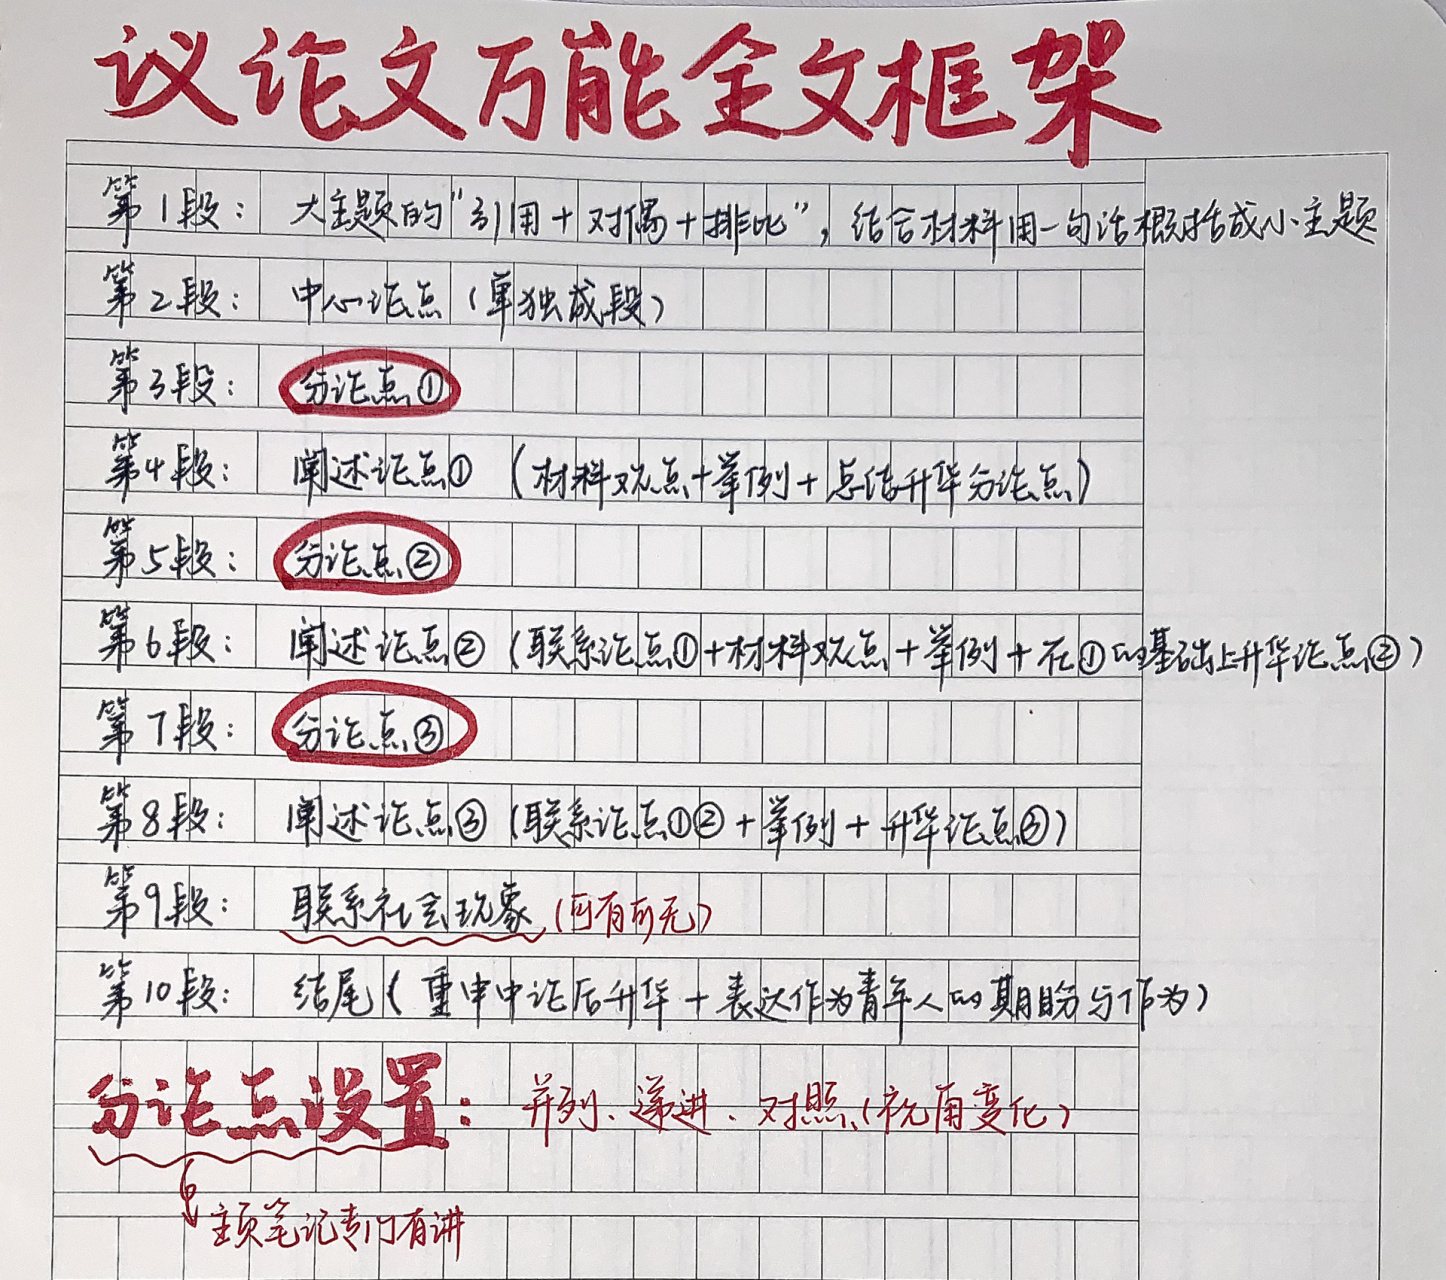 议论文万能全文框架
第1段：大主题的“引用+对偶+排比”，结合材料用一句话概括成小主题
第2段：中心论点（单独成段）
第3段：分论点①
第4段：阐述论点①（材料观点+举例+总结升华分论点）
第5段：分论点②
第6段：阐述论点②（联系论点①+材料观点+举例+在①的基础上升华论点②）
第7段：分论点③
第8段：阐述论点③（联系论点①②+举例+升华论点③）
第9段：联系社会现象（可有可无）
第10段：结尾（重申中论后升华+表达作为青年人的期盼与作为）
分论点设置：并列、递进、对照（视角变化）
主页笔记专门有讲